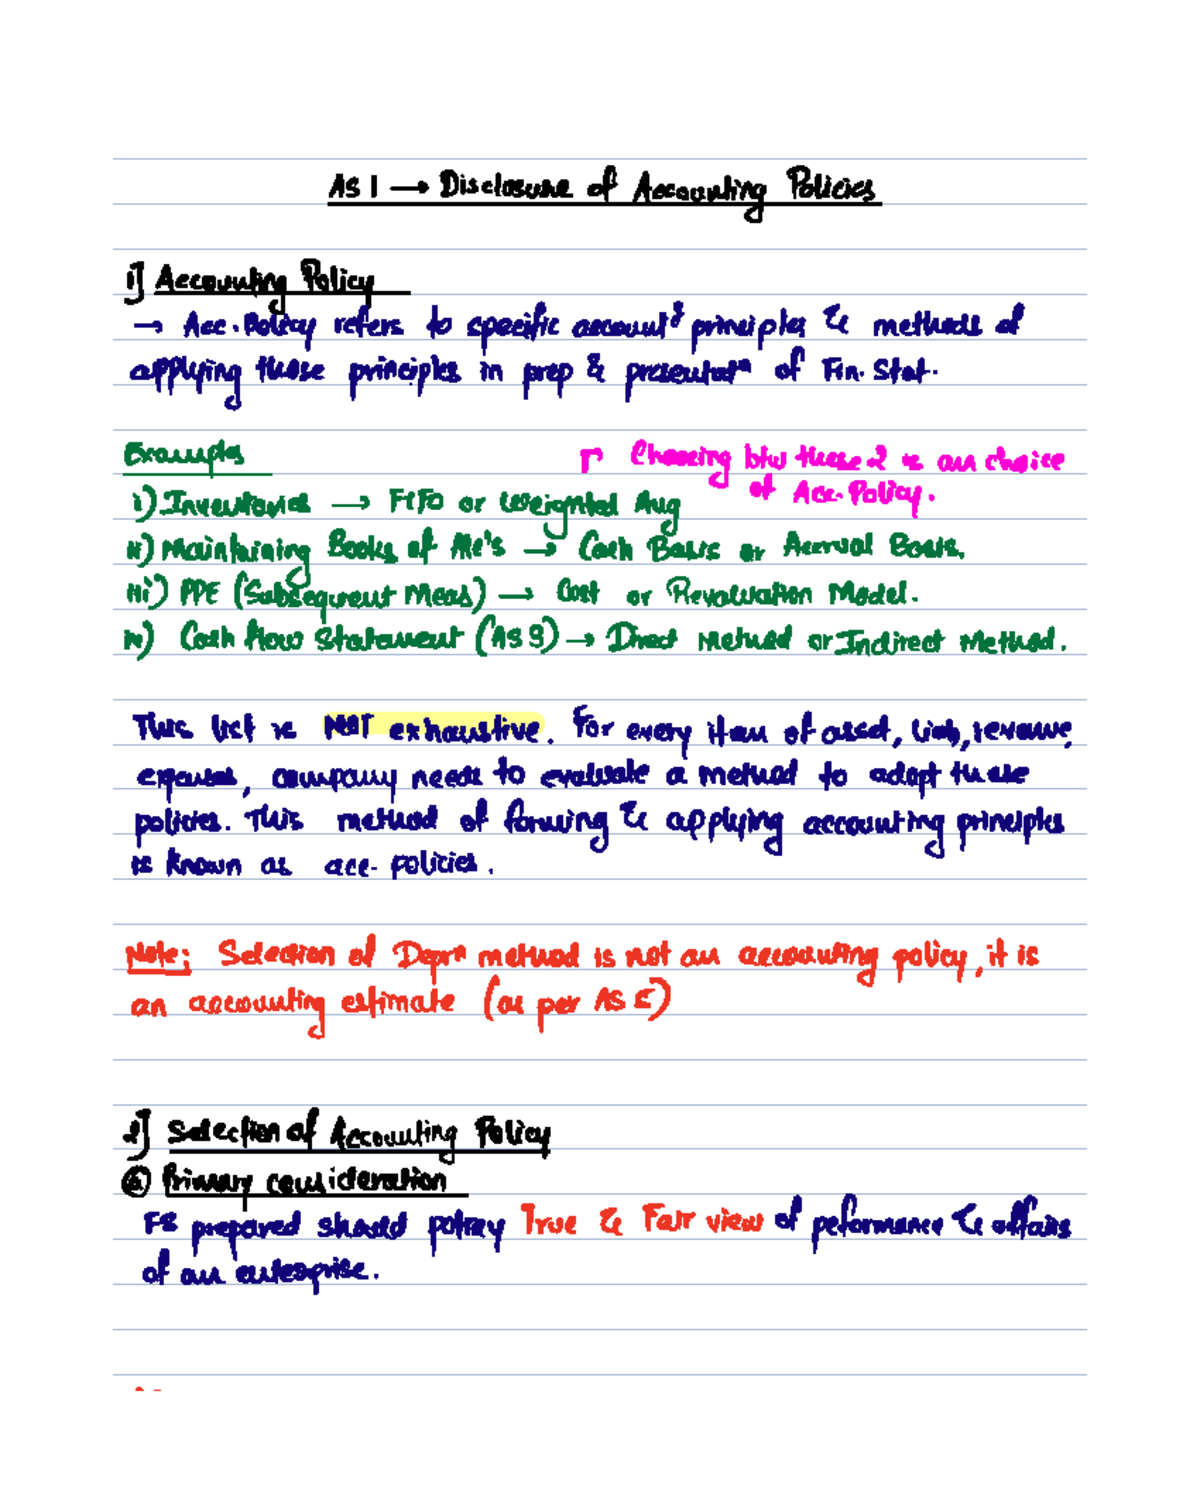 AS 1 → Disclosure of Accounting Policies
1] Accounting Policy
→ Acc. Policy refers to specific accountg principles & methods of
applying those principles in prep & presentatn of Fin. Stat.
Examples
Choosing btw these 2 is an choice
of Acc. Policy.
i) Inventories → FIFO or Weighted Avg
ii) Maintaining Books of A/c's → Cash Basis or Accrual Basis.
iii) PPE (Subsequent Meas) → Cost or Revaluation Model.
iv) Cash flow Statement (AS 3) → Direct Method or Indirect Method.
This list is NOT exhaustive. For every item of asset, liab, revenue,
expenses, company needs to evaluate a method to adopt these
policies. This method of forming & applying accounting principles
is known as acc. policies.
Note: Selection of Deprn method is not an accounting policy, it is
an accounting estimate (as per AS 5)
2] Selection of Accounting Policy
(a) Primary consideration
FS prepared should potray True & Fair view of peformance & affairs
of an enterprise.